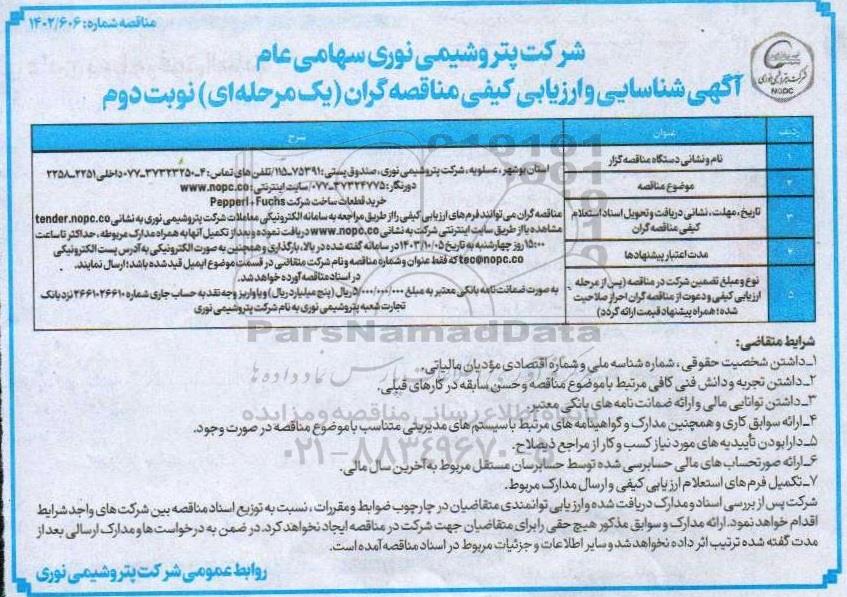 مناقصه شماره: ۱۴۰۲/۶۰۶
شرکت پتروشیمی نوری سهامی عام
آگهی شناسایی و ارزیابی کیفی مناقصه گران (یک مرحله‌ای) نوبت دوم
شرکت پتروشیمی نوری
NOPC
ردیف عنوان شرح
۱ نام و نشانی دستگاه مناقصه گزار
استان بوشهر، عسلویه، شرکت پتروشیمی نوری، صندوق پستی: ۷۵۳۹۱-۱۱۵/ تلفن های تماس: ۴-۳۷۳۲۳۲۵۰-۰۷۷ داخلی ۲۲۵۱-۲۲۵۸
دورنگار: ۳۷۳۲۴۷۷۵-۰۷۷/ سایت اینترنتی: www.nopc.co
۲ موضوع مناقصه
خرید قطعات ساخت شرکت Pepperl+Fuchs
۳ تاریخ، مهلت، نشانی دریافت و تحویل اسناد استعلام کیفی مناقصه گران
مناقصه گران می توانند فرم های ارزیابی کیفی را از طریق مراجعه به سامانه الکترونیکی معاملات شرکت پتروشیمی نوری به نشانی tender.nopc.co
مشاهده یا از طریق سایت اینترنتی شرکت به نشانی www.nopc.co دریافت نموده و بعد از تکمیل آنها به همراه مدارک مربوطه، حداکثر تا ساعت
۱۵:۰۰ روز چهارشنبه به تاریخ ۱۴۰۳/۱۰/۰۵ در سامانه گفته شده در بالا، بارگذاری و همچنین به صورت الکترونیکی به آدرس پست الکترونیکی
tec@nopc.co که فقط عنوان و شماره مناقصه و نام شرکت متقاضی در قسمت موضوع ایمیل قید شده باشد؛ ارسال نمایند.
۴ مدت اعتبار پیشنهادها
در اسناد مناقصه آورده خواهد شد.
۵ نوع و مبلغ تضمین شرکت در مناقصه (پس از مرحله
ارزیابی کیفی و دعوت از مناقصه گران احراز صلاحیت
شده؛ همراه پیشنهاد قیمت ارائه گردد)
به صورت ضمانت نامه بانکی معتبر به مبلغ ۵/۰۰۰/۰۰۰/۰۰۰ ریال (پنج میلیارد ریال) و یا واریز وجه نقد به حساب جاری شماره ۲۶۶۱۰۲۶۶۱۰ نزد بانک
تجارت شعبه پتروشیمی نوری به نام شرکت پتروشیمی نوری
ParsNamadData
پارس نماد داده ها
پایگاه اطلاع رسانی مناقصه و مزایده
۰۲۱-۸۸۳۴۹۶۷۰-۵
شرایط متقاضی:
۱_داشتن شخصیت حقوقی، شماره شناسه ملی و شماره اقتصادی مؤدیان مالیاتی.
۲_داشتن تجربه و دانش فنی کافی مرتبط با موضوع مناقصه و حسن سابقه در کارهای قبلی.
۳_داشتن توانایی مالی و ارائه ضمانت نامه های بانکی معتبر.
۴_ارائه سوابق کاری و همچنین مدارک و گواهینامه های مرتبط با سیستم های مدیریتی متناسب با موضوع مناقصه در صورت وجود.
۵_دارا بودن تأییدیه های مورد نیاز کسب و کار از مراجع ذیصلاح.
۶_ارائه صورتحساب های مالی حسابرسی شده توسط حسابرسان مستقل مربوط به آخرین سال مالی.
۷_تکمیل فرم های استعلام ارزیابی کیفی و ارسال مدارک مربوط.
شرکت پس از بررسی اسناد و مدارک دریافت شده و ارزیابی توانمندی متقاضیان در چارچوب ضوابط و مقررات، نسبت به توزیع اسناد مناقصه بین شرکت های واجد شرایط
اقدام خواهد نمود. ارائه مدارک و سوابق مذکور هیچ حقی را برای متقاضیان جهت شرکت در مناقصه ایجاد نخواهد کرد. در ضمن به درخواست ها و مدارک ارسالی بعد از
مدت گفته شده ترتیب اثر داده نخواهد شد و سایر اطلاعات و جزئیات مربوط در اسناد مناقصه آمده است.
روابط عمومی شرکت پتروشیمی نوری